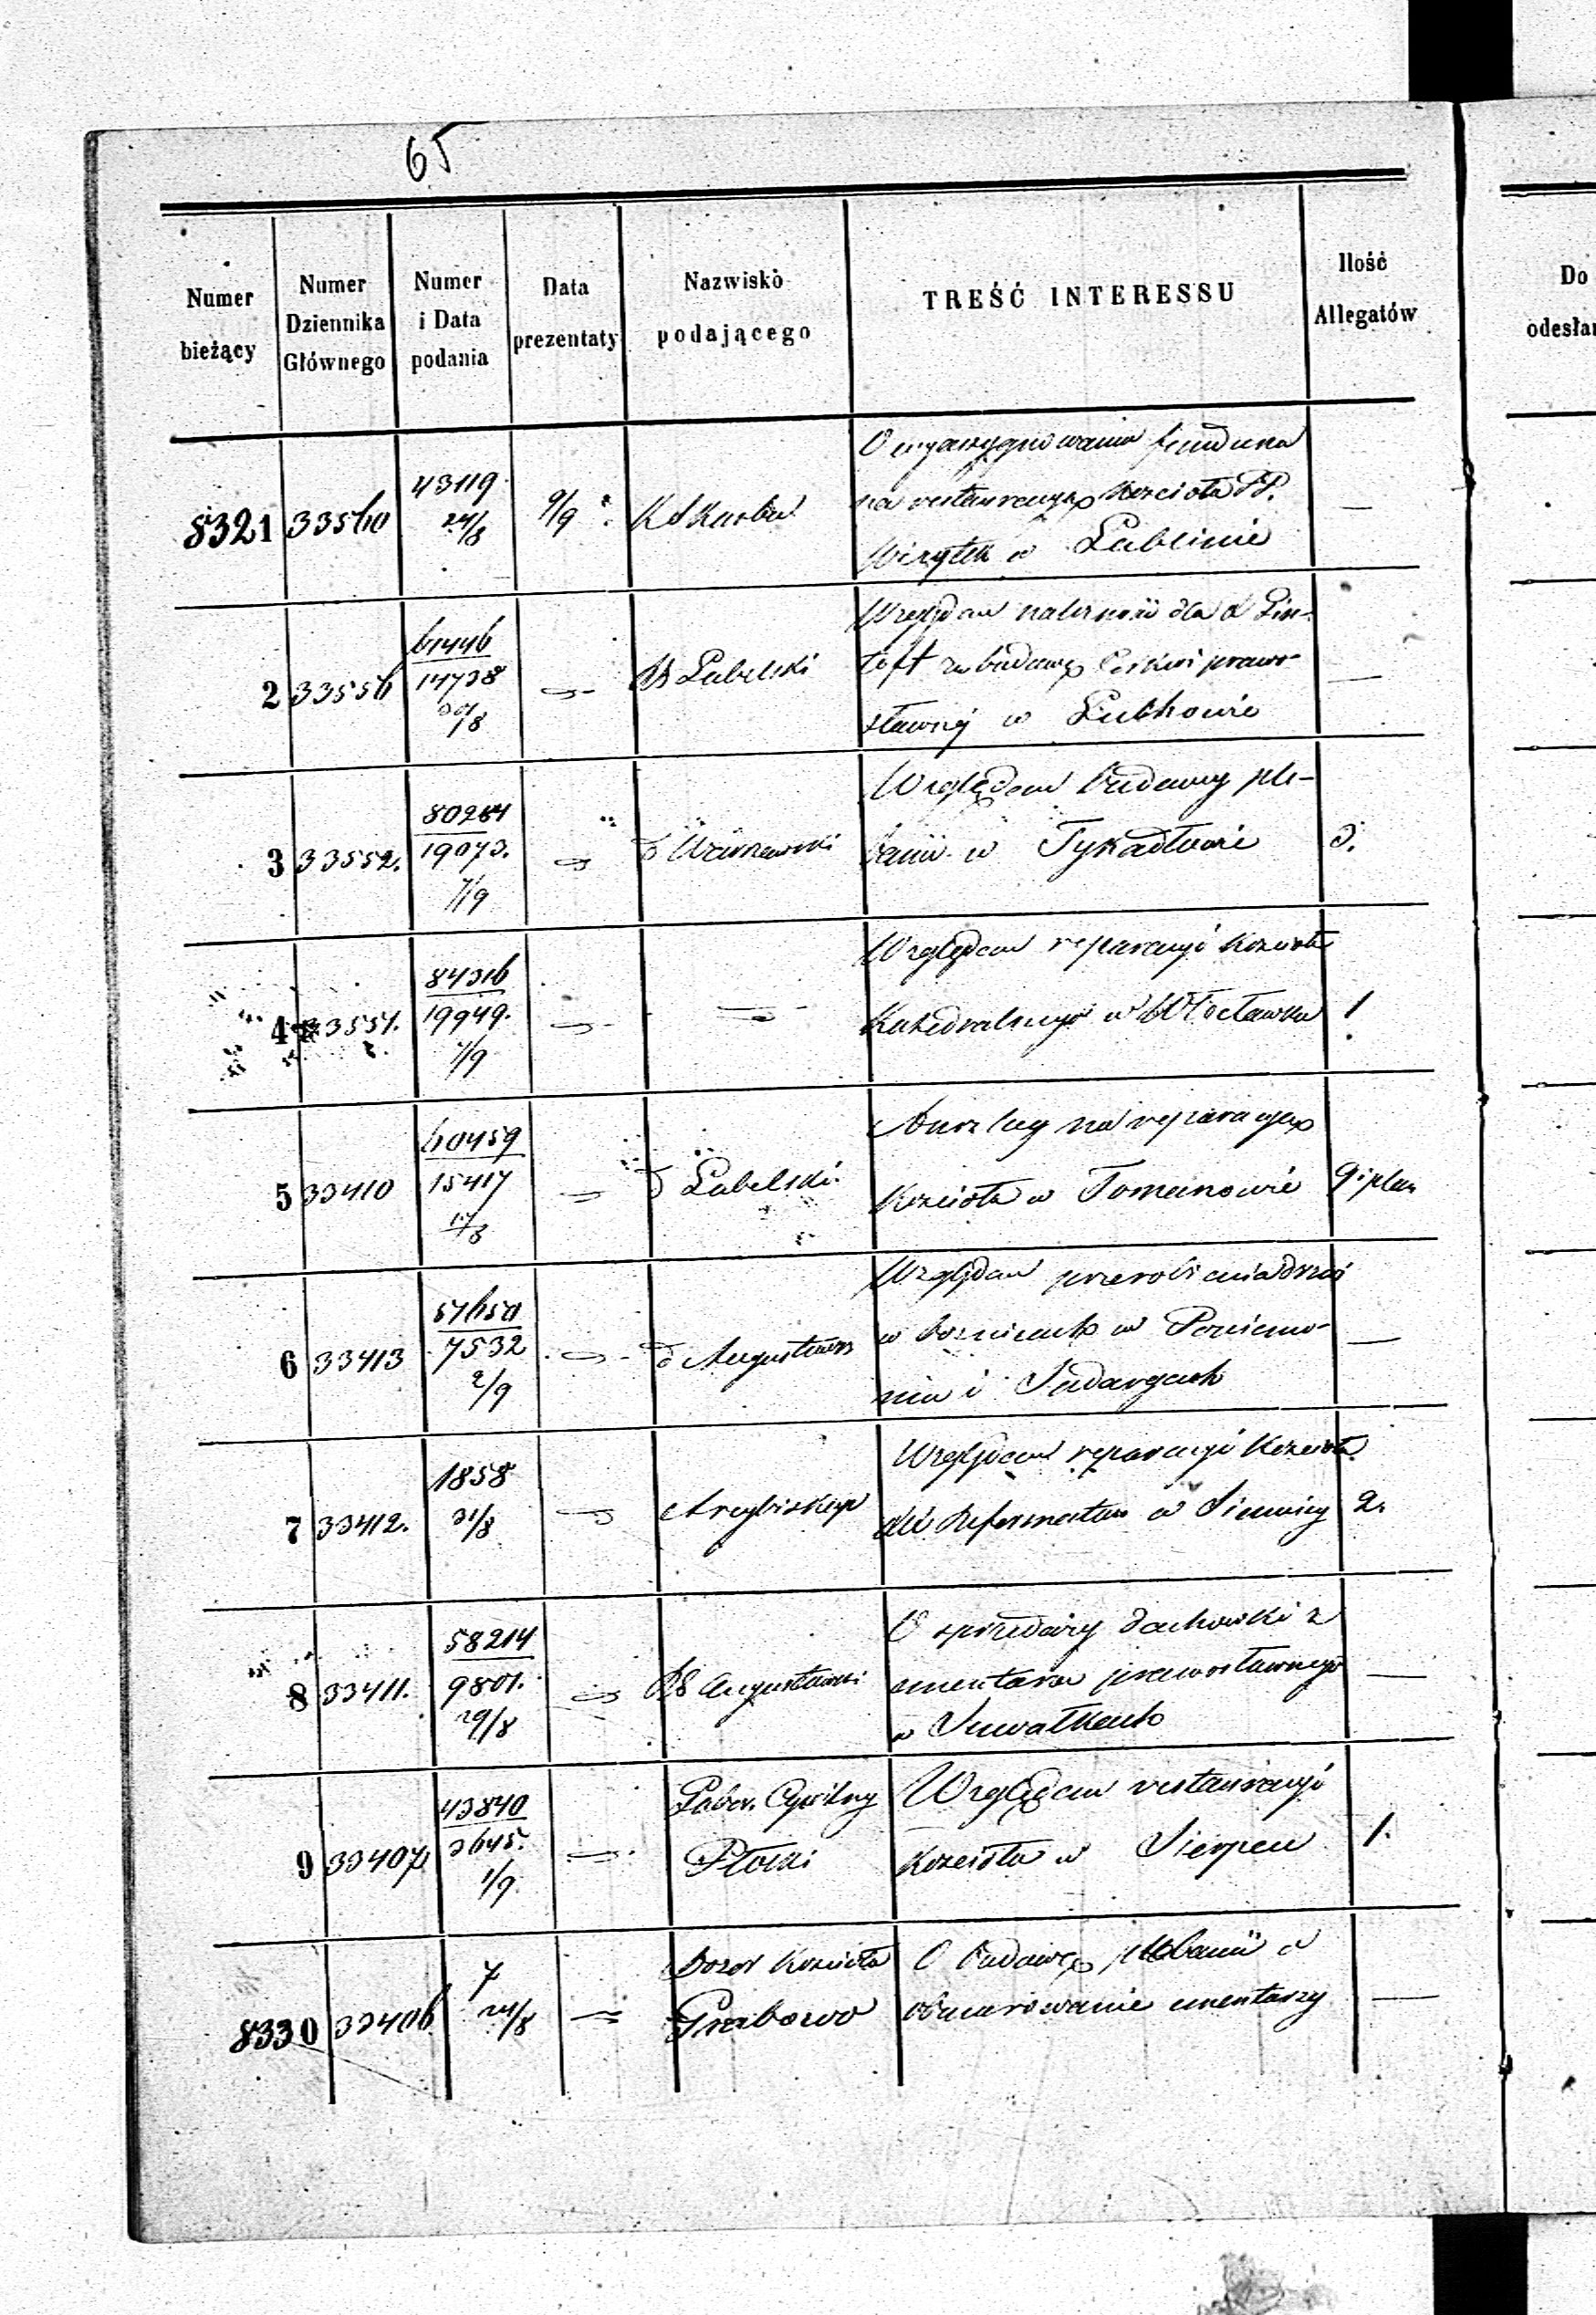 65
Numer bieżący
Numer Dziennika Głównego
Numer i Data podania
Data prezentaty
Nazwisko podającego
TREŚĆ INTERESSU
Ilość Allegatów
Do
odesła
8321 33560 43119 24/8 9/9 K S Karbu
O wyasygnowanie funduszu
na restauracyą Kościoła PP.
Wizytek w Lublinie —
2 33556 61446 14738 30/8 Lubelski
Względem należności dla
za budowę Cerkwi prawo-
sławnej w —
3 33552. 80264 19073. 7/9 Warszawski
Względem budowy ple-
banii w Tykadłowie 3.
4 33551. 84316 19949. 7/9
Względem reparacyi Kościoła
Katedralnego w Włocławku 1
5 33410 60459 15417 17/8 Lubelski.
Anszlag na reparacyą
Kościoła w Tomanowie 9 i plan
6 33413 57650 7532 2/9 Augustows
Względem przerobienia drzwi
w bożnicach w Poniemo-
niu i Sudargach —
7 33412. 1858 31/8 Arcybiskup
Względem reparacyi Kościoła
Reformatów w Siennicy 2.
8 33411. 58214 9801. 29/8 Augustowski
O sprzedaży dachówki z
cmentarza prawosławnego
w Suwałkach —
9 33407 43840 3645. 1/9 Guber. Cywilny
Płocki
Względem restauracyi
Kościoła w Sierpcu 1.
8330 33406 7 24/8 Dozor Kościoła
Grabowo
O budowę plebanii i
obmurowanie cmentarzy —